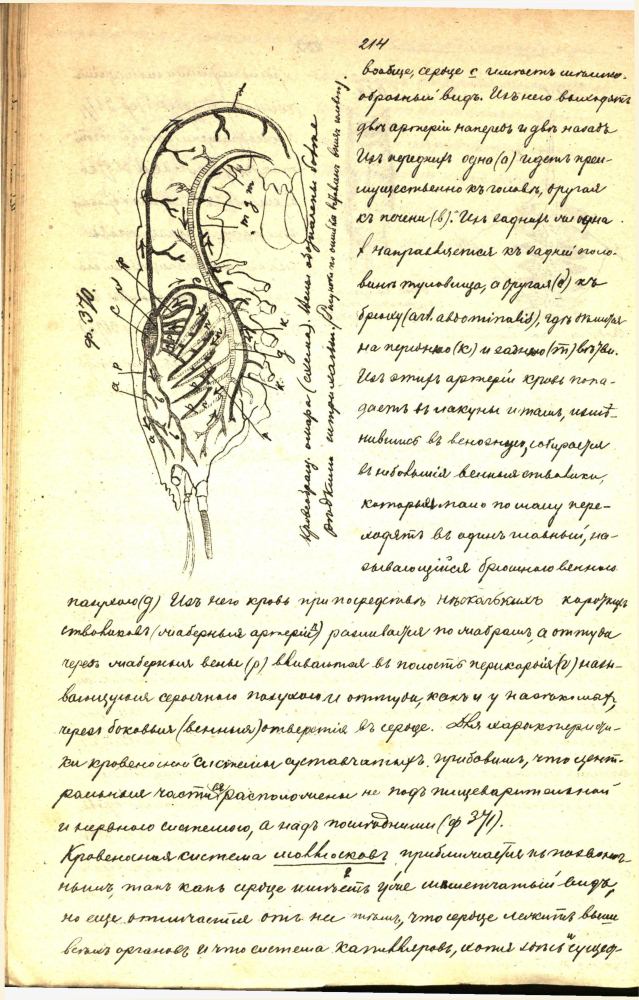 214
вообще, сердце с имѣетъ мѣшко-
образный видъ. Изъ него выходятъ
двѣ артеріи напередъ и двѣ назадъ
Изъ переднихъ одна (а) идетъ преи-
мущественно къ головѣ, другая
къ печени (в). Изъ заднихъ же одна
f направляется къ задней поло-
винѣ туловища, а другая (е) къ
брюху (art. abdominalis), гдѣ дѣлится
на переднюю (к) и заднюю (m) вѣтви.
Изъ этихъ артерій кровь попа-
даетъ въ лакуны и тамъ, измѣ-
нившись въ венозную, собирается
въ небольшія венныя стволики,
которыя мало по малу пере-
ходятъ въ одинъ главный, на-
зывающійся брюшного венного
пазухою (g) Изъ него кровь при посредствѣ нѣсколькихъ короткихъ
стволиковъ (жаберныя артеріи n) разливается по жабрамъ, а оттуда
черезъ жаберныя вены (р) вливается въ полость перикардія (v) назы-
вающуюся сердечного пазухою и оттуда, какъ и у насѣкомыхъ,
черезъ боковыя (венныя) отверстія въ сердце. Для характеристи-
ки кровеносной системы суставчатыхъ прибавимъ, что цент-
ральныя части ея расположены не подъ пищеварительной
и нервного системою, а надъ послѣдними (ф 371).
Кровеносная система моллюсковъ приближается къ позвоноч-
нымъ, такъ какъ сердце имѣетъ уже мѣшетчатый видъ,
но еще отличается отъ нея тѣмъ, что сердце лежитъ выше
всѣхъ органовъ и что система капилляровъ, хотя хоть и сущест-
ф. 370.
Кровеобращ. омара (схема). Вены обозначены болѣе
рѣдкими штрихами. (Рисунокъ по ошибкѣ